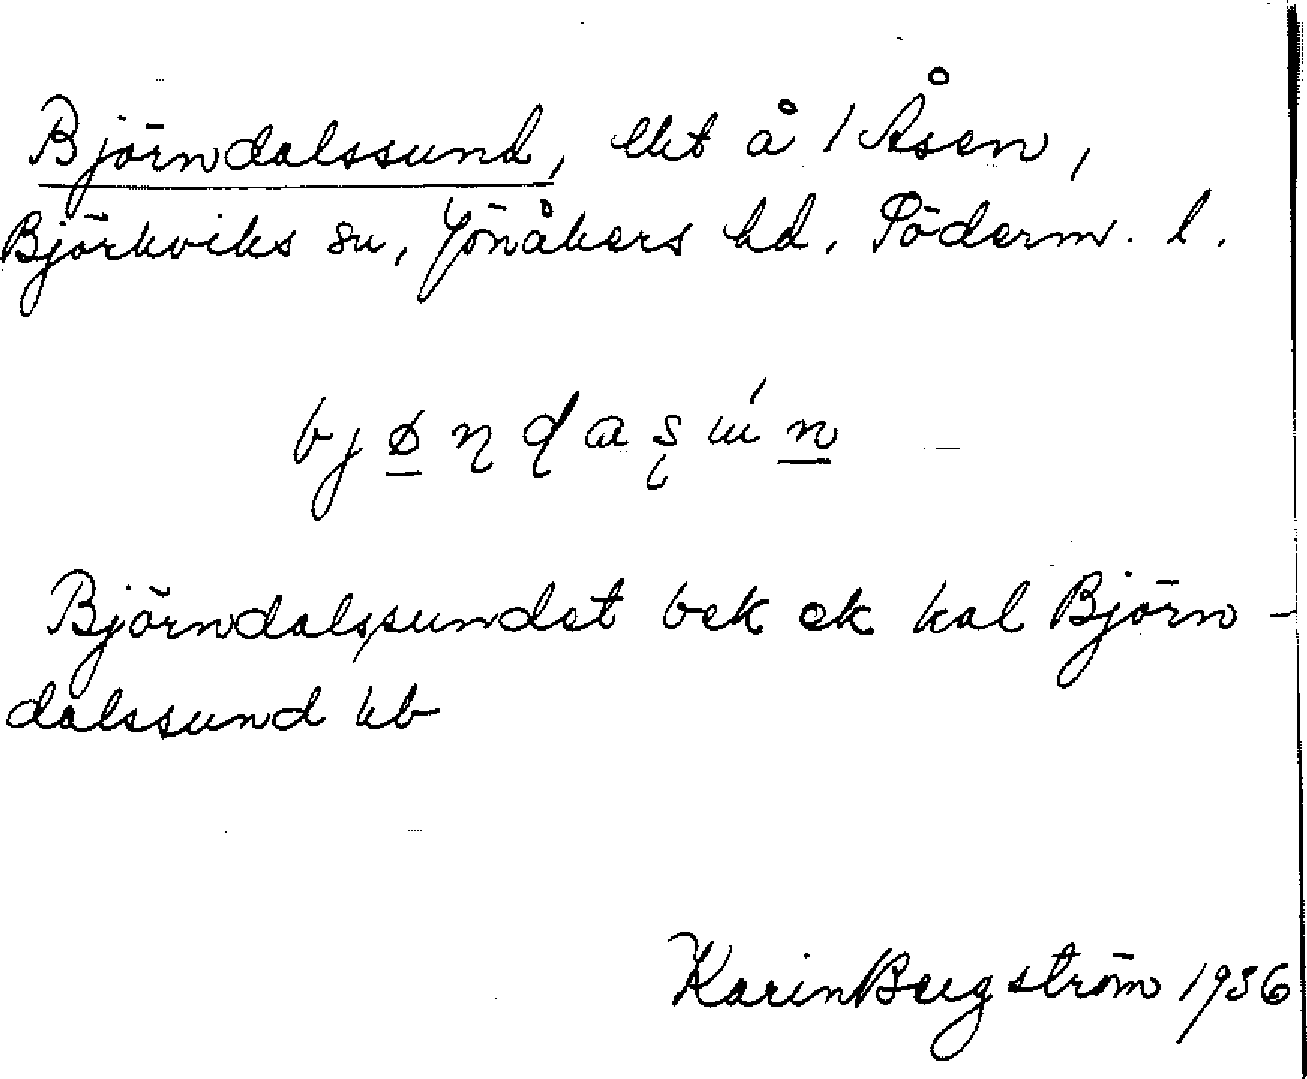 Björndalssund, lht å 1 Åsen,
Björkviks sn, Jönåkers hd. Söderm. l.
bjønɳɖaʂɯ́n
Björndalssundet bek ek kal Björn-
dalssund kb
Karin Bergström 1936